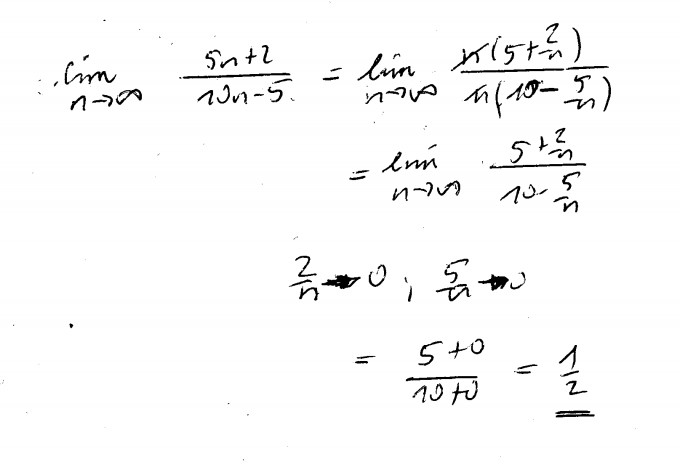 lim n→∞ (5n+2)/(10n-5) = lim n→∞ n(5+2/n)/n(10-5/n)
= lim n→∞ (5+2/n)/(10-5/n)
2/n → 0 ; 5/n → 0
= (5+0)/(10+0) = 1/2